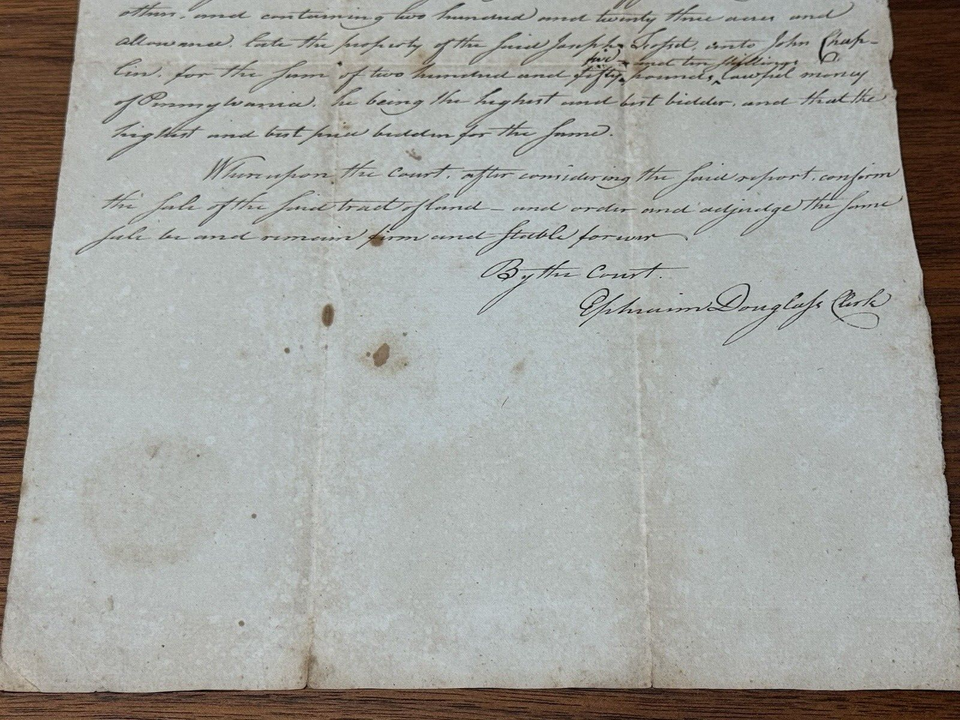 others, and containing two hundred and twenty three acres and
allowance, late the property of the said Joseph, unto John Chap-
five and ten shillings
lin, for the sum of two hundred and fifty pounds, lawful money
of Pennsylvania, he being the highest and best bidder, and that the
highest and best price bidden for the same.
Whereupon the court, after considering the said report, confirm
the sale of the said tract of land – and order and adjudge the same
sale be and remain firm and stable forever
By the Court.
Ephraim Douglass Clerk